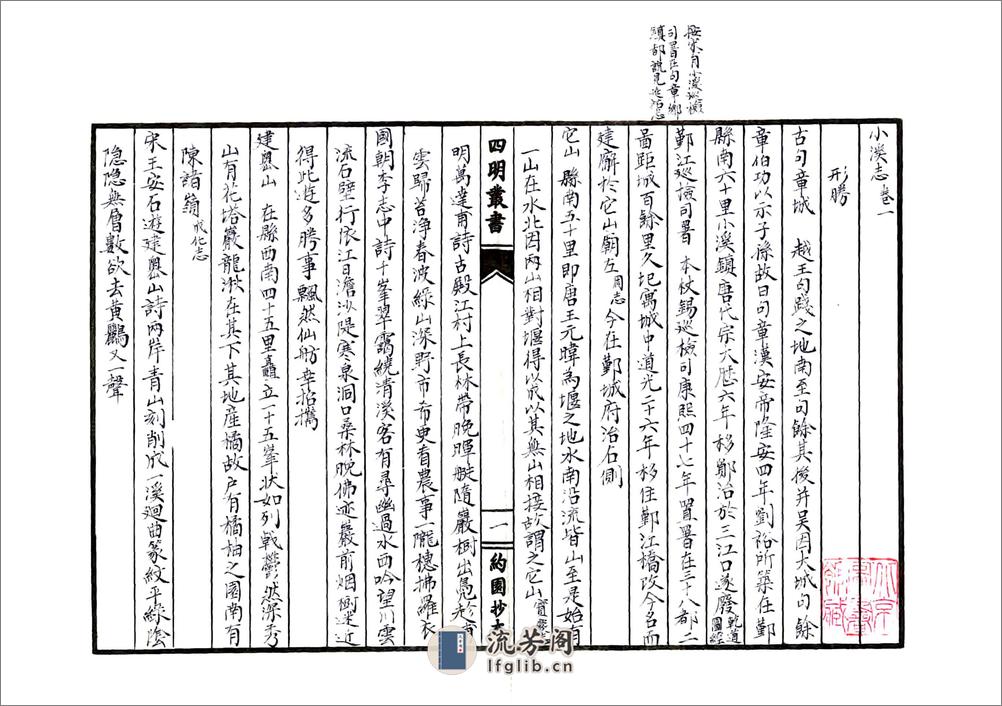 按宋有小溪巡檢
司署在句章鄉
小溪志 卷一
形勝
古句章城 越王句踐之地南至句餘其後并吳因大城句餘
章伯功以示子孫故曰句章漢安帝隆安四年劉裕所築在鄞
縣南六十里小溪鎮唐代宗大歷六年移鄮治於三江口遂廢 乾道圖經
鄞江巡檢司署 本杖錫巡檢司康熙四十七年置署在三十八都二
啚距城百餘里久圮寓城中道光二十六年移住鄞江橋改今名而
建廨於它山廟左 周志 今在鄞城府治右側
它山 縣南五十里即唐王元暐為堰之地水南沿流皆山至是始有
一山在水北因兩山相對堰得以成以其無山相接故謂之它山
四明叢書
一
約園抄本
明萬達甫詩古殿江村上長林帶晚暉艇隨巖樹出鳧於
雲歸苔淨春波綠山深野市希更看農事一隴穗拂羅衣
國朝李志中詩十峯翠靄繞清溪客有尋幽過水西吟望川雲
流石壁行依江日澹沙隄寒泉洞口桑林晚佛跡巖前烟樹迷近
得此遊多勝事飄然仙舫幸招攜
建嶴山 在縣西南四十五里矗立一十五峯狀如列戟鬱然深秀
山有花塔巖龍湫在其下其地產橘故戶有橘柚之園南有
陳諸嶺 成化志
宋王安石遊建嶴山詩兩岸青山刻削成一溪迴曲篆紋平綠陰
隱隱無層數欲去黃鸝又一聲
流芳阁
lfglib.cn